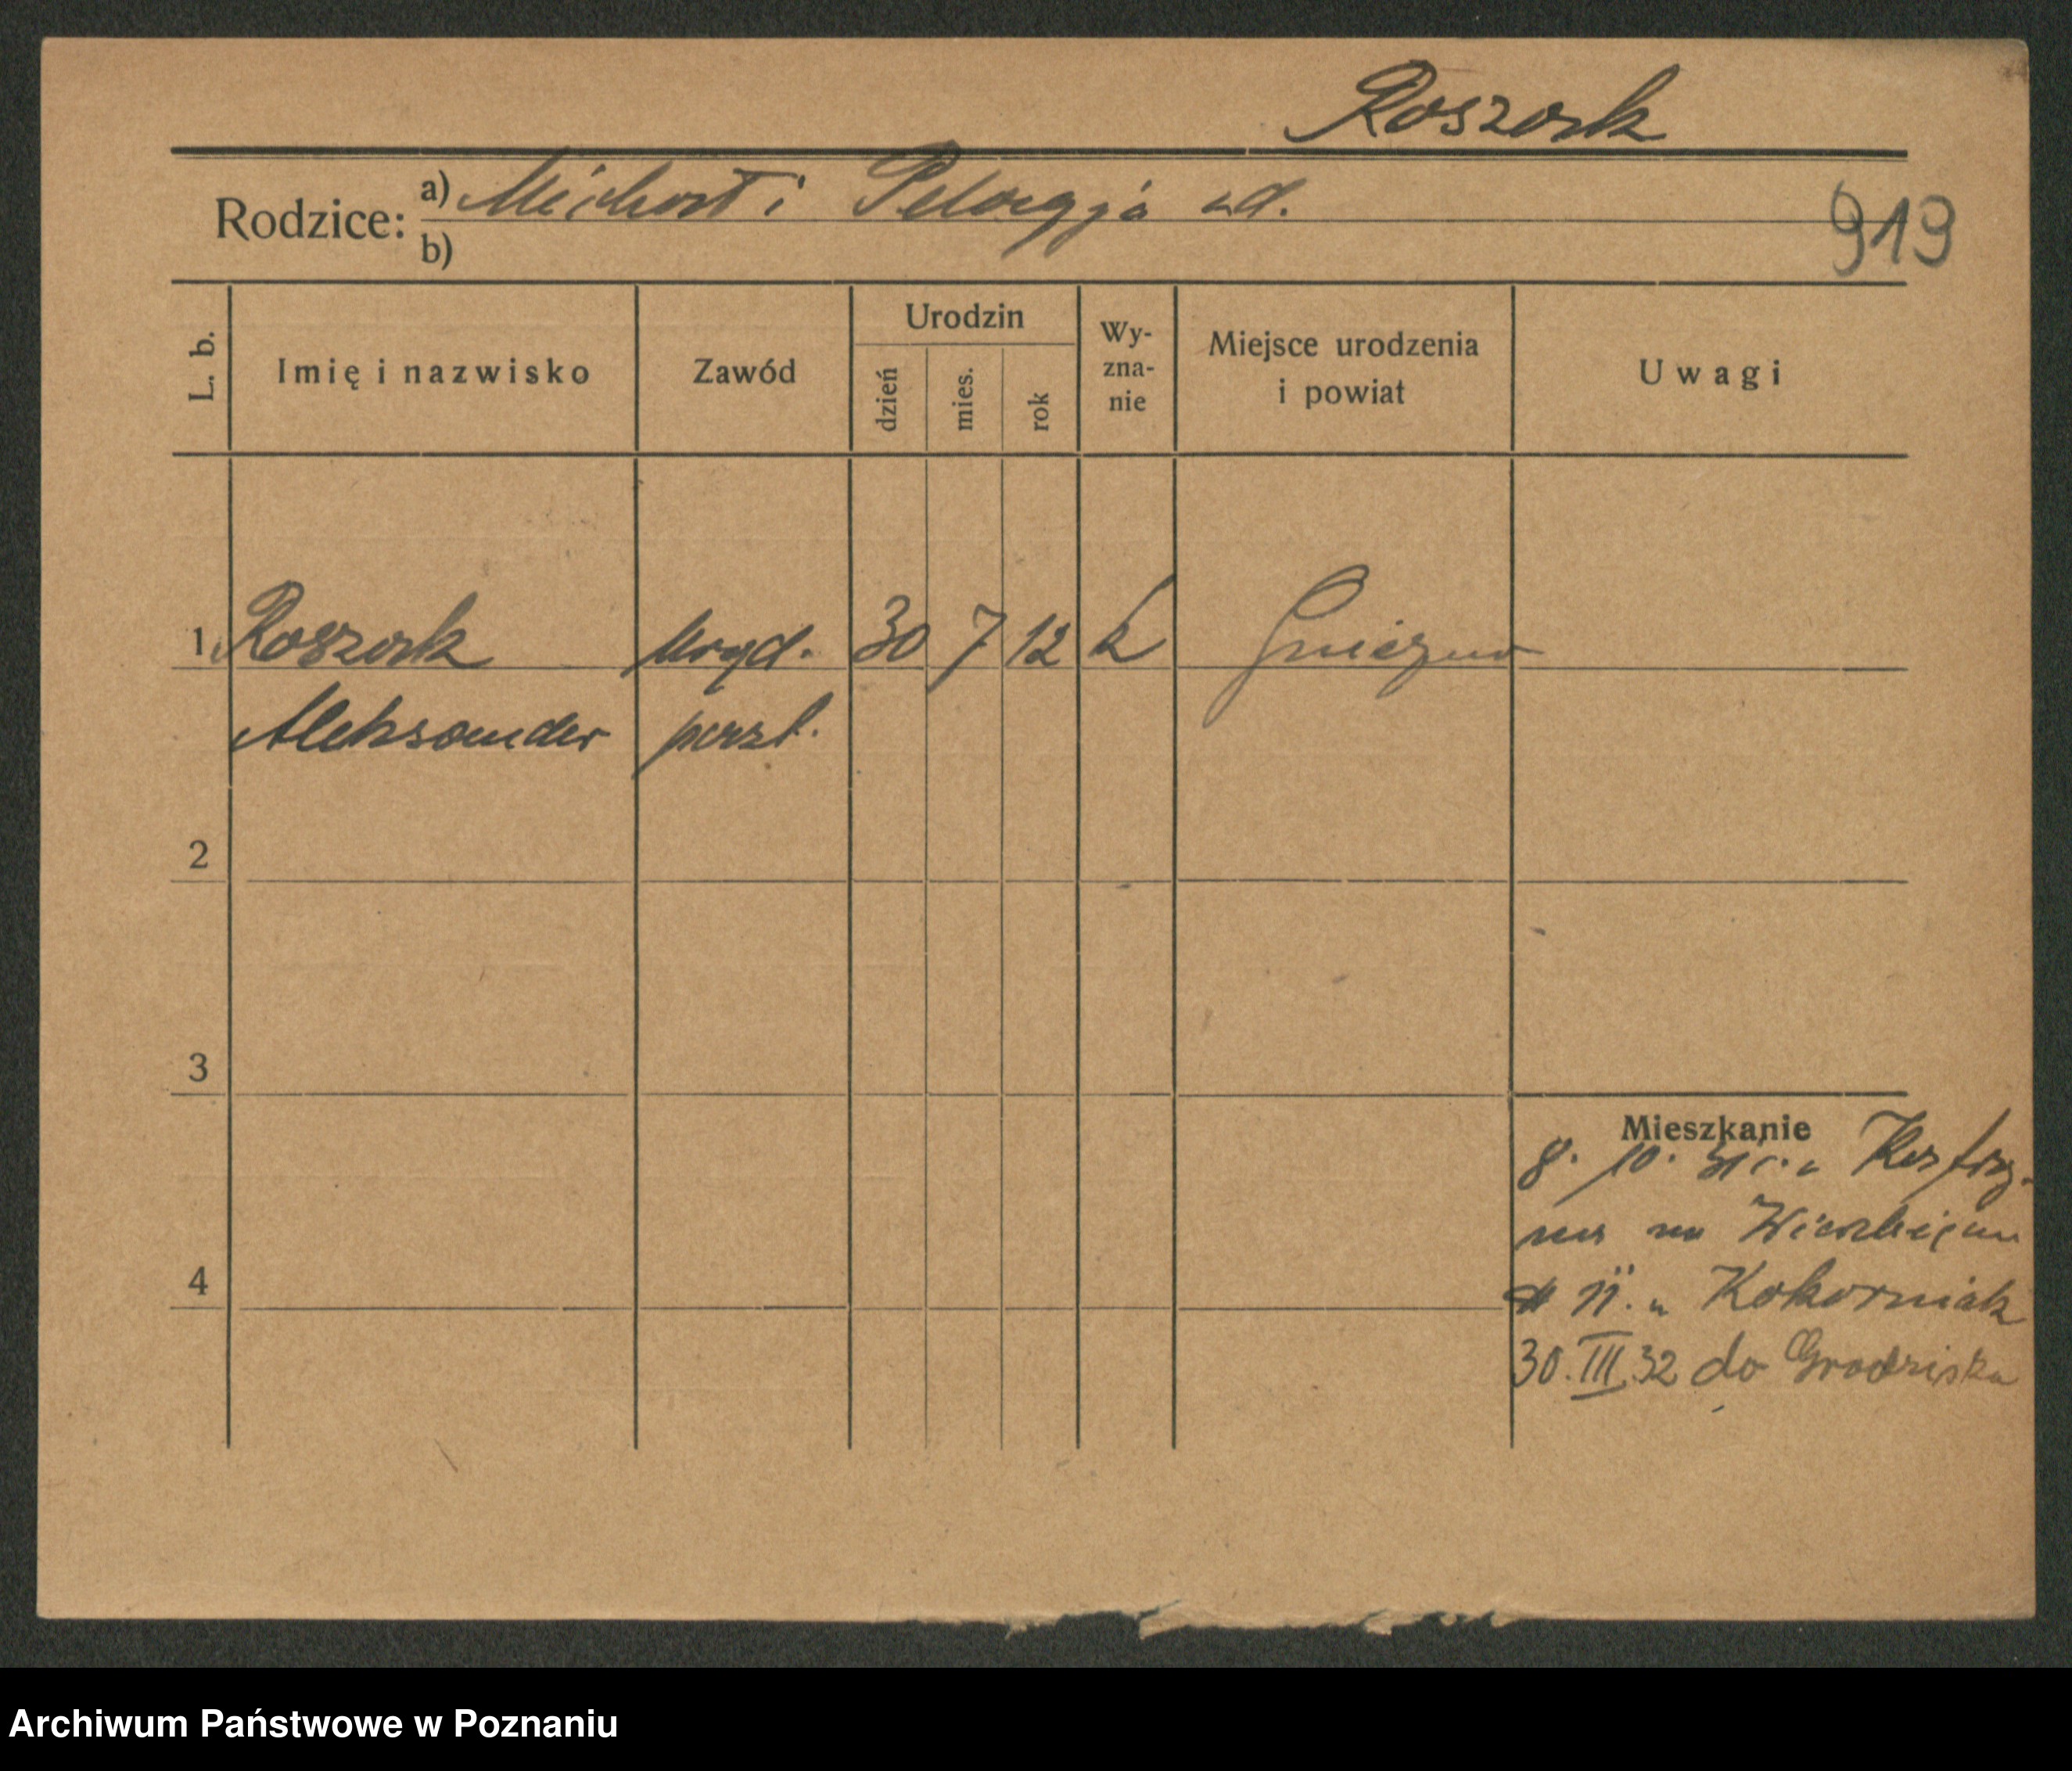 Roszak
Rodzice: a) Michał i Pelagja
b)
919
L. b. Imię i nazwisko Zawód Urodzin dzień mies. rok Wy-zna-nie Miejsce urodzenia i powiat Uwagi
1 Roszak Urzd. 30 7 12 k Gniezno
Aleksander poczt.
2
3
Mieszkanie
8. 10.
4
11. u Kokorniak
30.III.32 do Grodziska
Archiwum Państwowe w Poznaniu